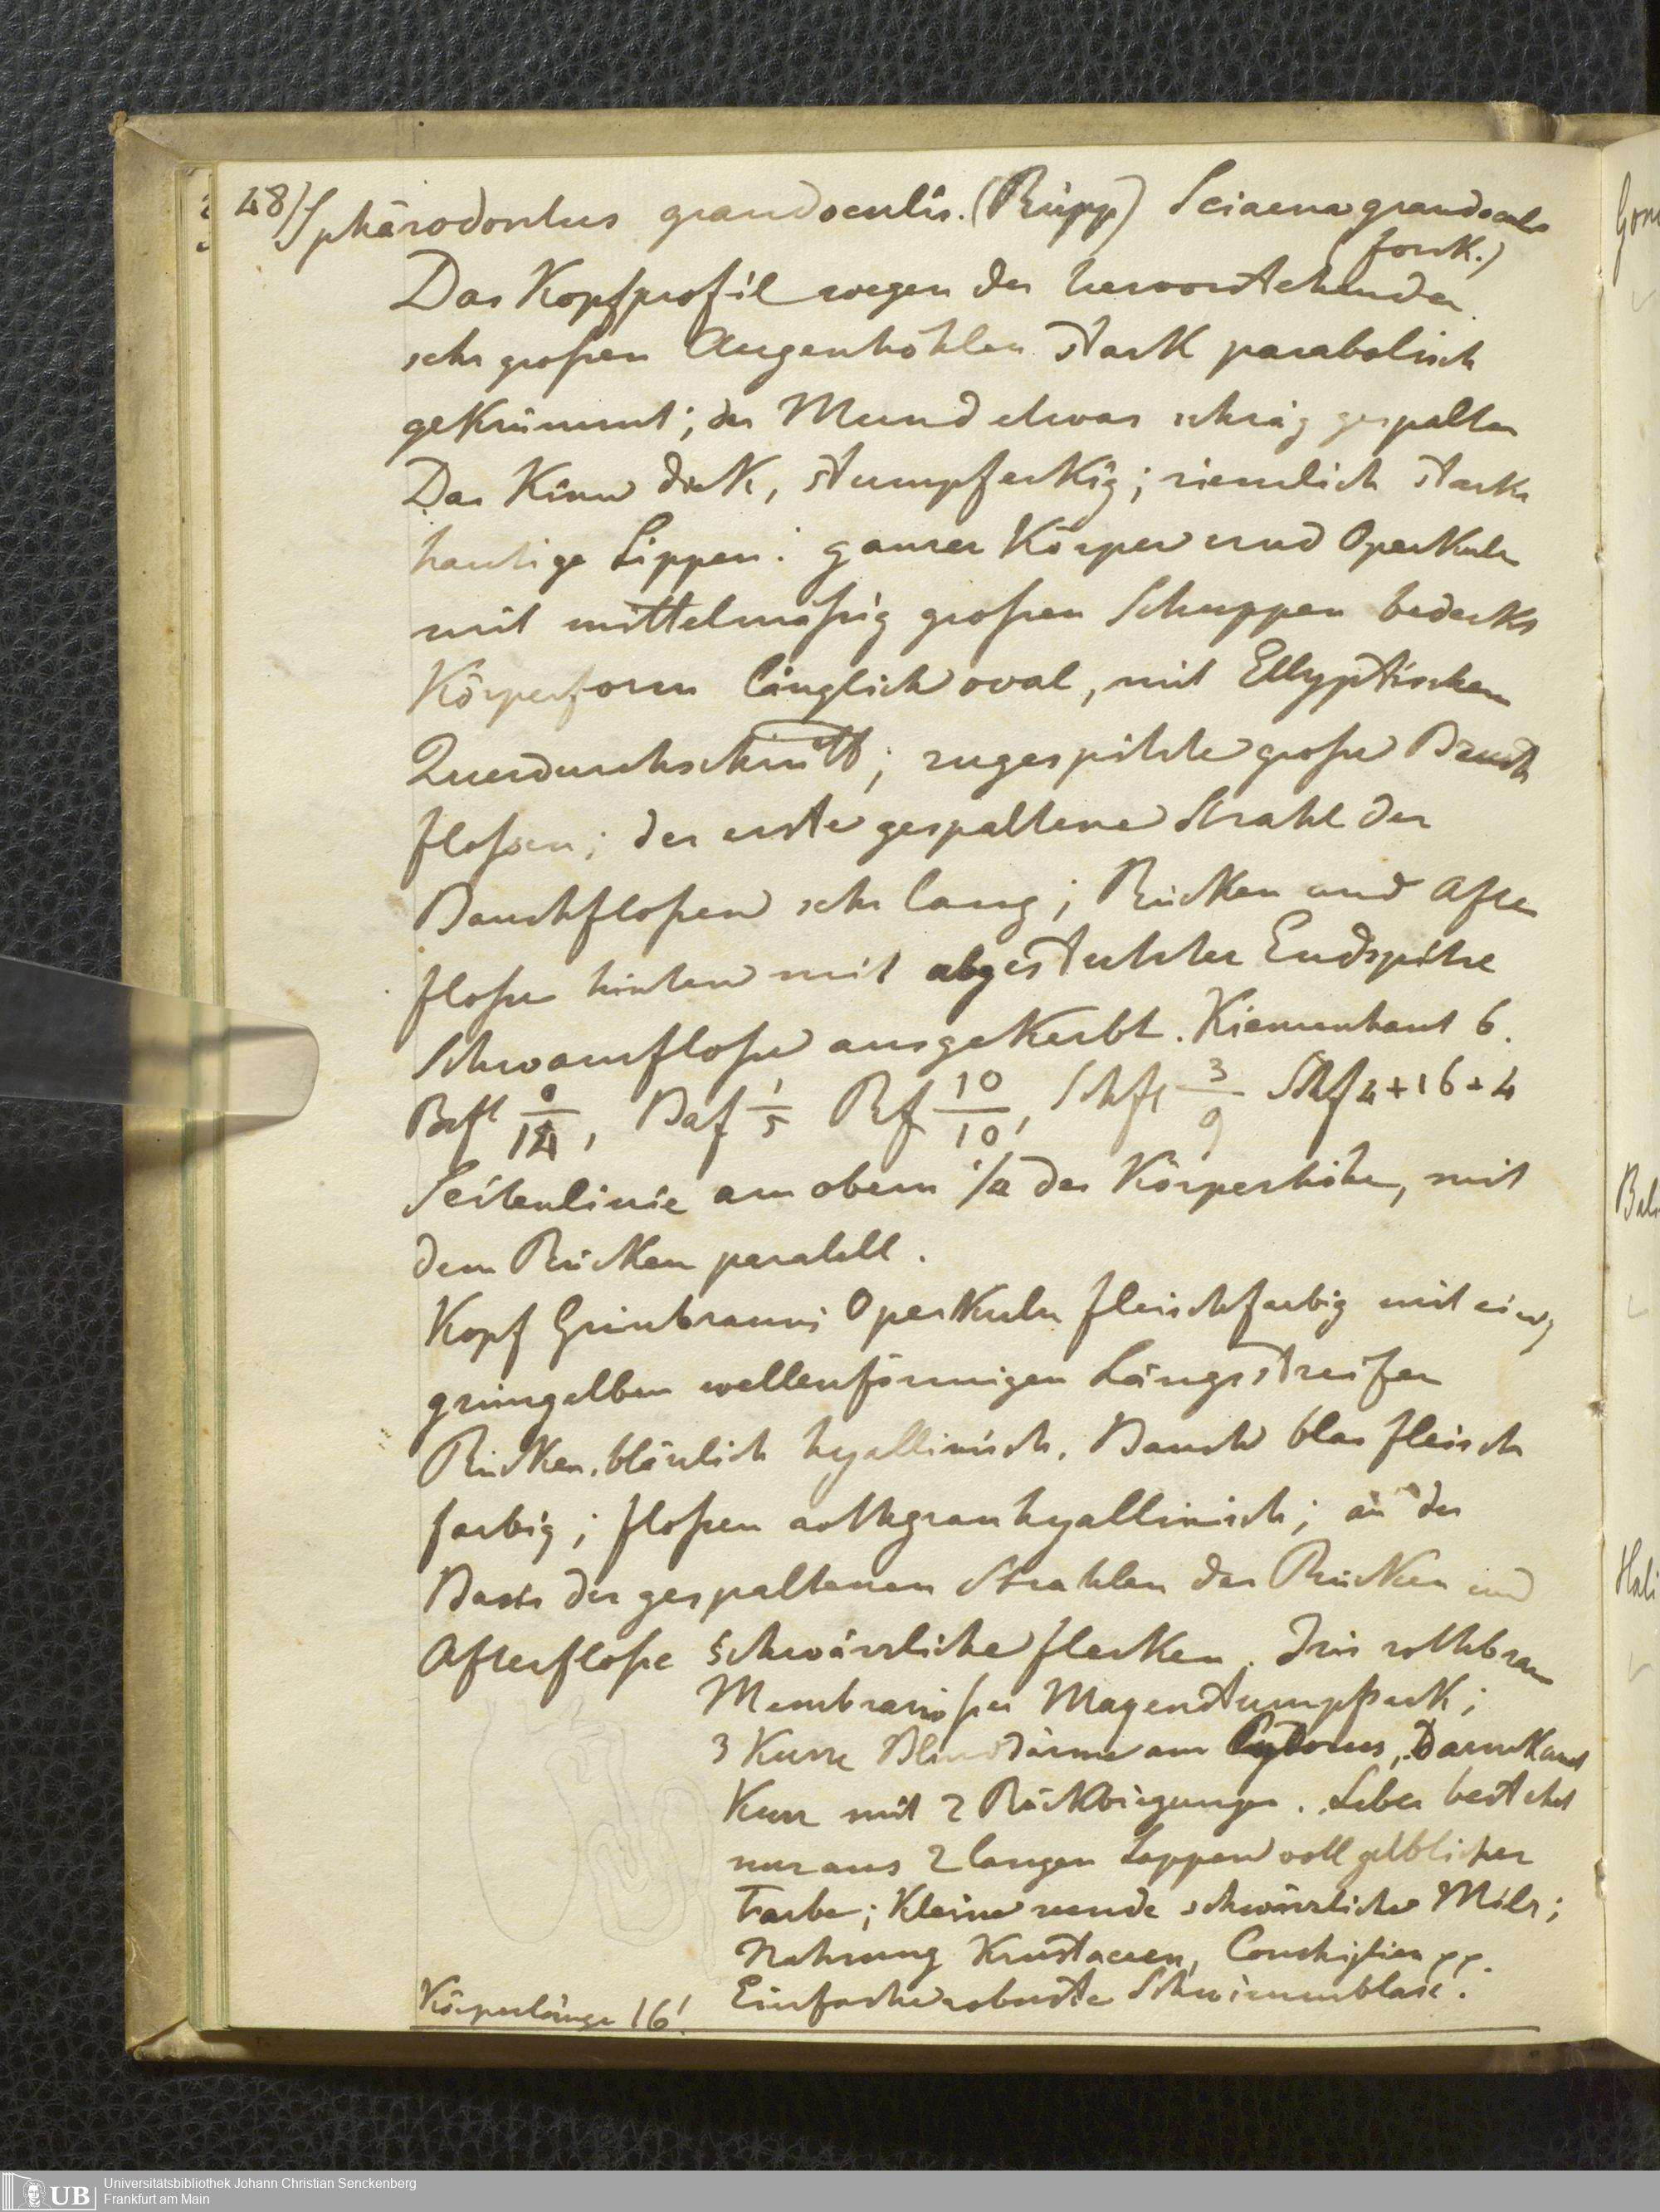 48) Sphärodontus grandoculis. (Rüpp) Sciaena grandoculis
(forsk.)
Das Kopfprofil wegen der hervorstehenden
sehr großen Augenhöhlen stark parabolisch
gekrümmt; der Mund etwas schräg gespalten
Das Kinn dick, stumpfeckig; ziemlich starke
hautige Lippen: ganzer Körper und Operkuln
mit mittelmäßig großen Schuppen bedeckt
Körperform länglich oval, mit Ellyptischen
Querdurchschnitt; zugespitzte große Brust
floßen; der erste gespaltene Strahl der
Bauchfloßen sehr lang; Rücken und After
floße hinten mit abgestutzter Endspitze
Schwanzfloße ausgekerbt. Kiemenhaut 6.
Brfl 0/14, Baf 1/5 Rf 10/10, Schfl 3/9 Schf 4+16+4
Seitenlinie am obern 1/4 der Körperhöhe, mit
dem Rücken paralell.
Kopf Grünbraun; Operkuln fleischfarbig mit einig
grüngelben wellenförmigen Längsstreifen
Rücken bläulich hyallinisch. Bauch blas fleisch
farbig; floßen rothgrau hyallinisch; an der
Basis der gespaltenen Strahlen der Rücken und
Afterfloße schwärzliche flecken. Iris rothbraun
Membranoser Magen stumpfsack;
3 Kurze Blinddärme am Pylorus, Darmkanal
Kurz mit 2 Rückbiegungen. Leber bestehet
nur aus 2 langen Lappen voll gelblicher
Farbe; Kleine runde schwärzliche Milz;
Nahrung Krustaceen, Conchilien pp.
Einfache robuste Schwimmblase.
Körperlänge 16!
Gon
Bal
Hali
UB Universitätsbibliothek Johann Christian Senckenberg
Frankfurt am Main